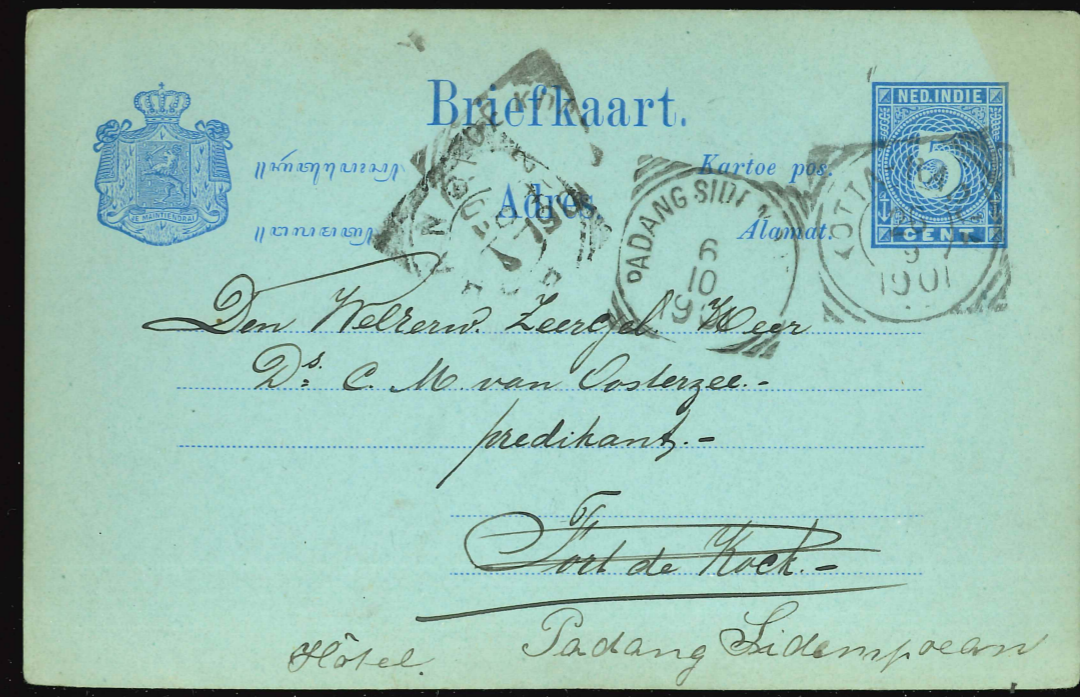 Briefkaart.
NED.INDIE
5
CENT
Kartoe pos.
Adres.
Alamat.
JE MAINTIENDRAI
PADANG SIDI
6
10
19
KOTTA
9
1901
Den Weleerw. Zeergel. Heer
Ds. C. M. van Oosterzee.-
predikant.-
Fort de Kock.-
Hôtel Padang Sidempoean